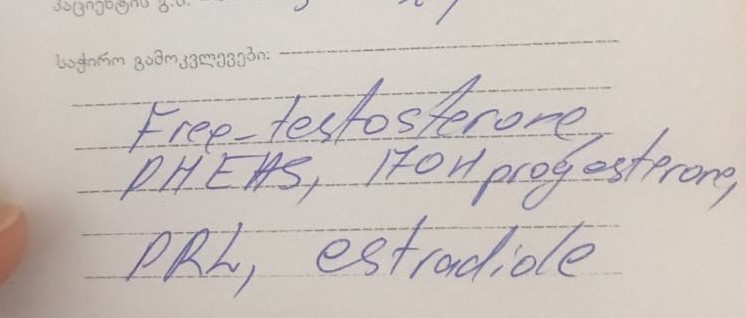 პაციენტის გ.ა.
საჭირო გამოკვლევები:
Free-testosterone,
DHEAS, 17OH progesterone,
PRL, estradiole